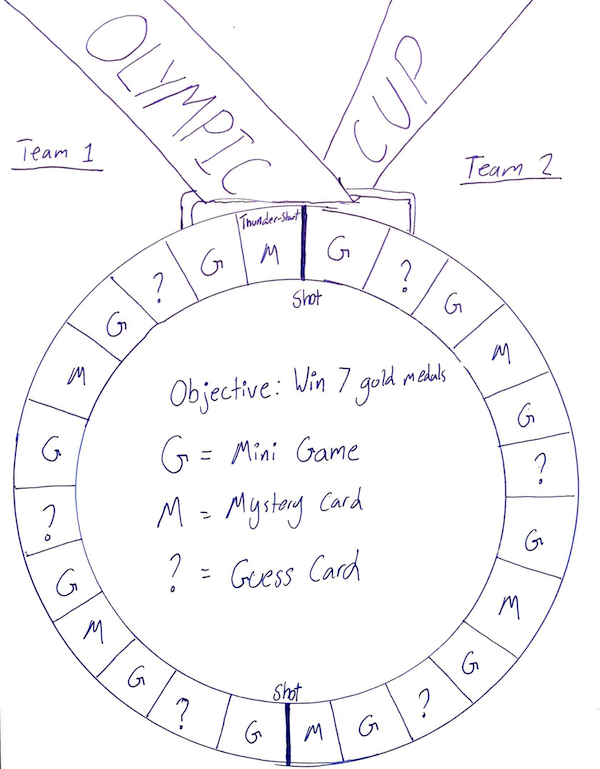 OLYMPIC CUP
Team 1
Team 2
Thunder-Start
M
G
?
G
M
G
?
G
M
G
?
G
M
G
?
G
M
G
?
G
M
G
?
G
Shot
Objective: Win 7 gold medals
G = Mini Game
M = Mystery Card
? = Guess Card
Shot